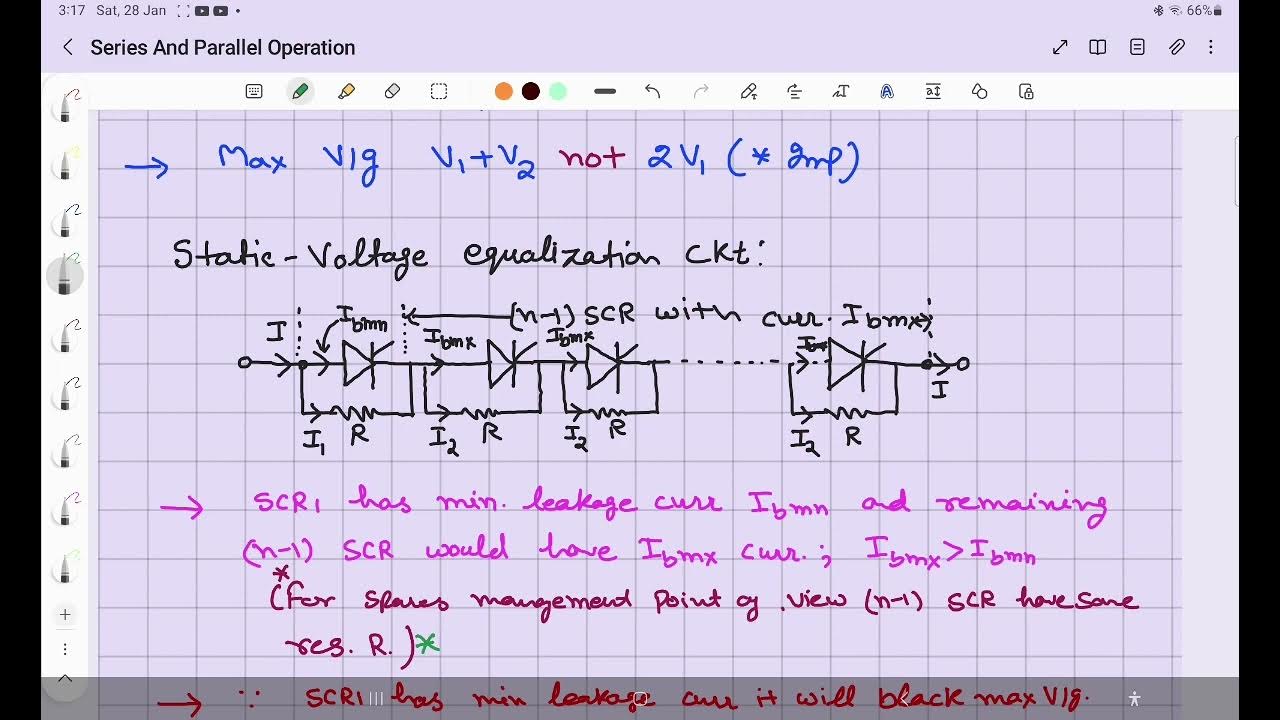 3:17 Sat, 28 Jan
66%
Series And Parallel Operation
→ Max V/g V₁+V₂ not 2V₁ (* Imp)
Static-Voltage equalization Ckt:
(n-1) SCR with curr. Ibmx
I Ibmn Ibmx Ibmx I
I₁ R I₂ R I₂ R I₂ R
→ SCR1 has min. leakage curr Ibmn and remaining
(n-1) SCR would have Ibmx curr.; Ibmx > Ibmn
*
(for spares mangement point of view (n-1) SCR have same
res. R.)*
→ ∵ SCR1 has min leakage curr it will black max V/g.